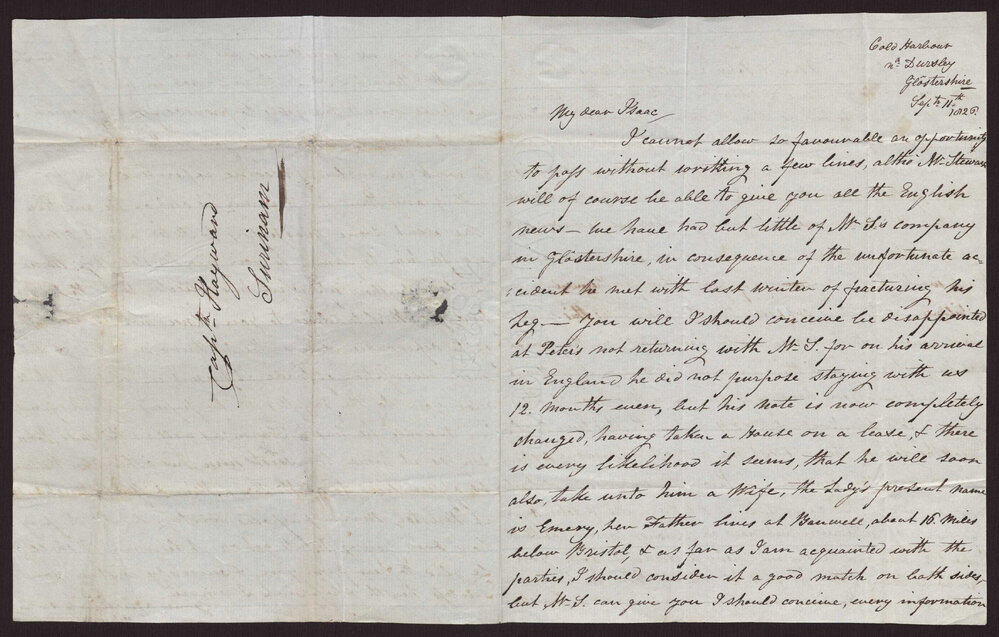 Capt.n Hayward
Surinam
Cold Harbour
nr. Dursley
Glostershire
Septr 11th
1826.
My dear Isaac
I cannot allow so favourable an opportunity
to pass without writing a few lines, altho Mr. Stewart
will of course be able to give you all the English
news — we have had but little of Mr. S.'s company
in Glostershire, in consequence of the unfortunate ac-
:cident he met with last winter of facturing his
Leg. — You will I should conceive be disappointed
at Peter's not returning with Mr. S. for on his arrival
in England he did not purpose staying with us
12. Months even, but his note is now completely
changed, having taken a House on a lease, & there
is every likelihood it seems, that he will soon
also, take unto him a Wife, the Lady's present name
is Emery, her Father lives at Banwell, about 16. Miles
below Bristol, & as far as I am acquainted with the
parties, I should consider it a good match on both sides,
but Mr. S. can give you I should conceive, every information